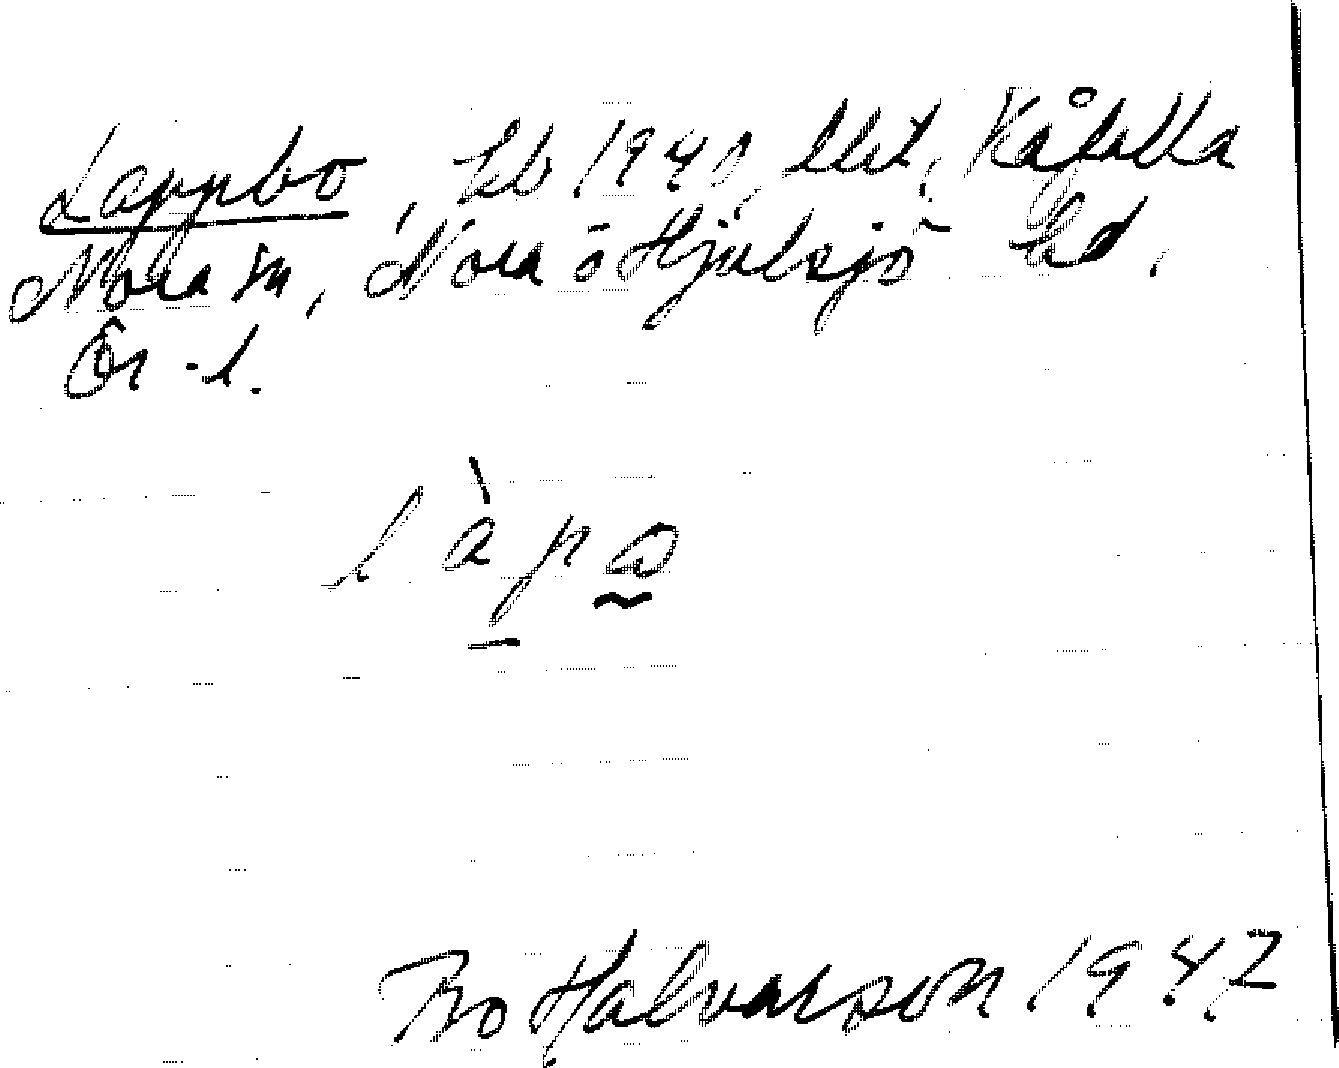 Lappbo, hb 1941, lht, Kåfalla
Nora sn, Nora o Hjulsjö hd.
Ör. l.
làpo
Bo Halvarson 1947